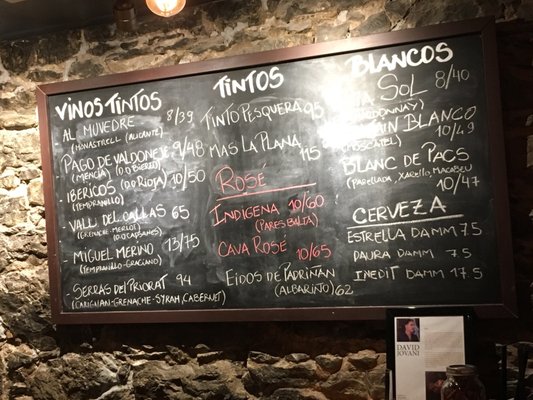 VINOS TINTOS
- AL MUVEDRE 8/39
(MONASTRELL (ALICANTE)
PAGO DE VALDONEJE 9/48
(MENCIA) (DO BIERZO)
IBERICOS (DO RIOJA) 10/50
(TEMPRANILLO)
- VALL DEL CALLAS 65
(GRENACHE-MERLOT)
(DO CAPSANES)
- MIGUEL MERINO 13/75
(TEMPRANILLO-GRACIANO)
SERRAS DEL PRIORAT 94
(CARIGNAN-GRENACHE-SYRAH, CABERNET)
TINTOS
TINTO PESQUERA 95
MAS LA PLANA 115
ROSÉ
INDIGENA 10/60
(PARES BALTA)
CAVA ROSÉ 10/65
EIDOS DE PADRIÑAN
(ALBARIÑO) 62
BLANCOS
SOL 8/40
BLANCO
10/49
BLANC DE PACS
(PARELLADA, XARELLO, MACABEU)
10/47
CERVEZA
ESTRELLA DAMM 7.5
DAURA DAMM 7.5
INEDIT DAMM 17.5
DAVID
JOVANI